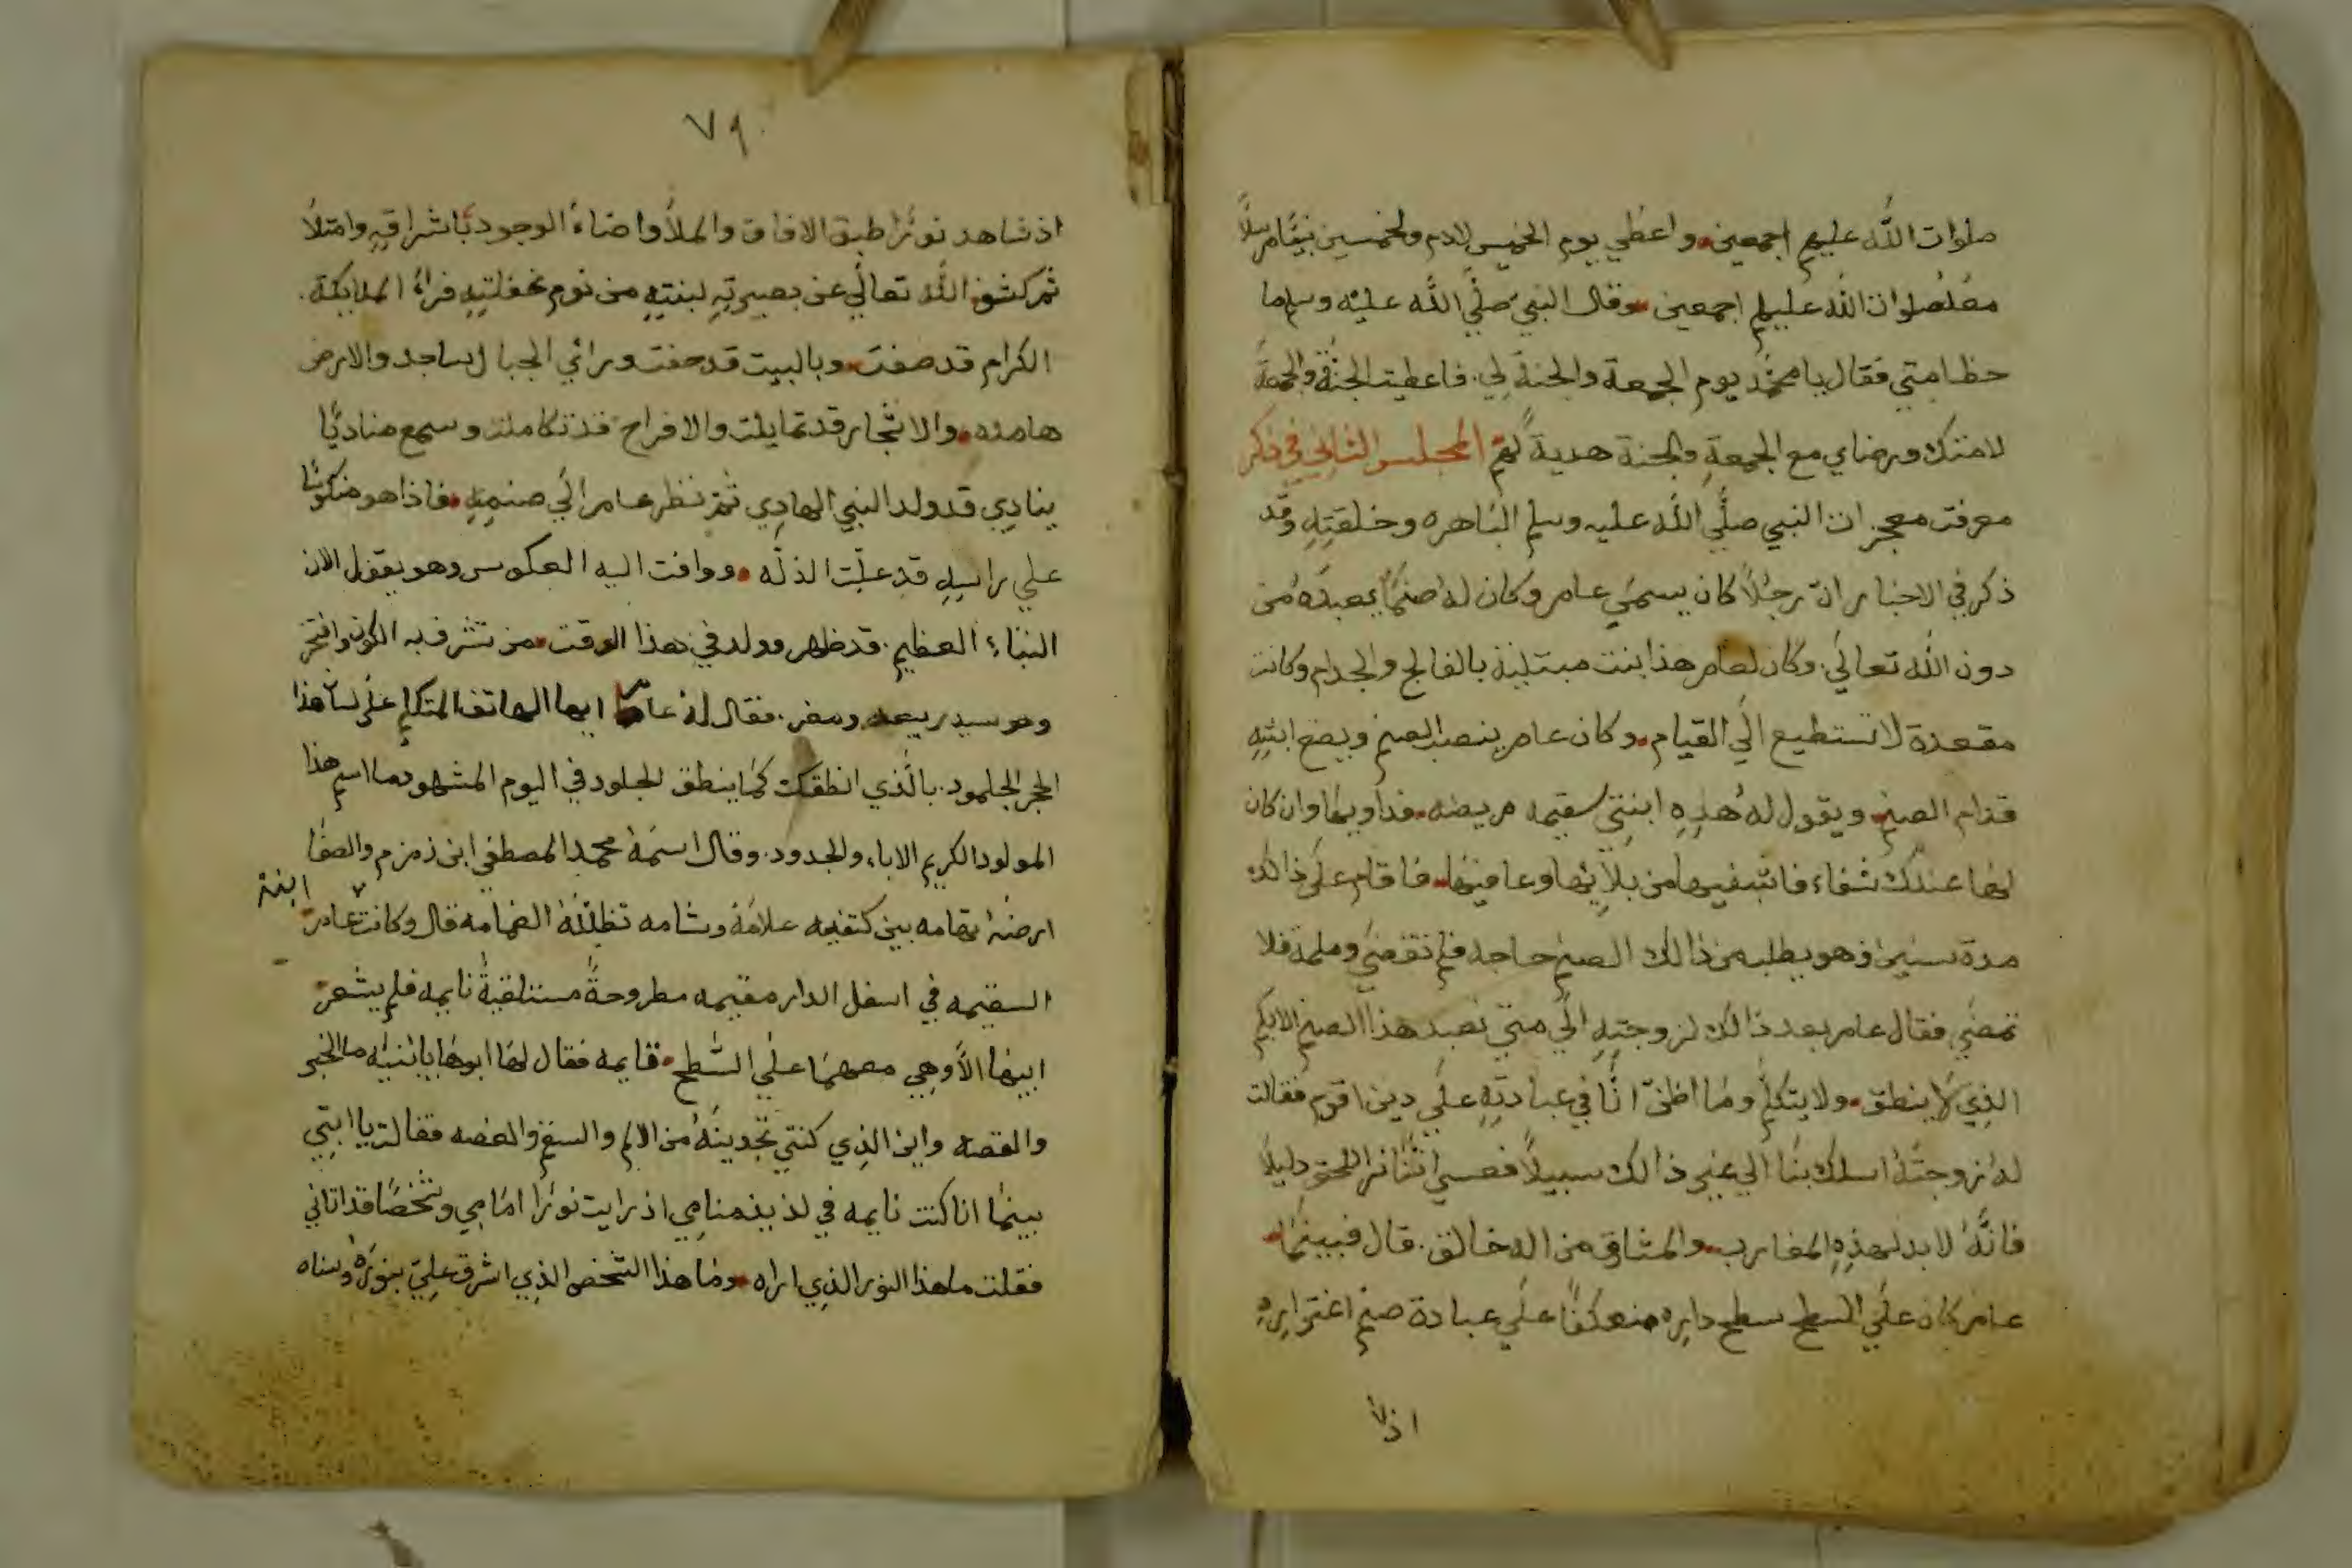 صلوات الله عليهم اجمعين واعطي يوم الخميس لادم ولخمسين نبيا مرسلا
معه صلوات الله عليهم اجمعين وقال النبي صلي الله عليه وسلم ما
حظ امتي فقال يا محمد يوم الجمعة والجنة لي فاعطيت الجنة والجمعة
لامتك ورضاي مع الجمعة والجنة هدية لهم المجلس الثاني في ذكر
معرفت معجزات النبي صلي الله عليه وسلم الباهره وخلقته وقد
ذكر في الاخبار ان رجلا كان يسمي عامر وكان له صنما يعبده من
دون الله تعالي وكان لعامر هذا بنت مبتلية بالفالج والجدام وكانت
مقعدة لا تستطيع الي القيام وكان عامر ينصب الصنم ويضع ابنته
قدام الصنم ويقول له هذه ابنتي سقيمه مريضه فداويها وان كان
لها عندك شفاء فاتشفيها من بلائها وعافيها فاقام علي ذالك
مدة سنين وهو يطلب من ذالك الصنم حاجه فلم تقضي وملمة فلا
تمضي فقال عامر بعد ذالك لزوجته الي متي نعبد هذا الصنم الابكم
الذي لا ينطق ولا يتكلم وما اظن انا في عبادته علي دين اقوم فقالت
له زوجته اسلك بنا الي غير ذالك سبيلا فعسي اننا نرا للحق دليلا
فانه لا بد لهذه المغارب والمشاق من اله خالق قال فبينما
عامر كان علي السطح سطح داره منعكفا علي عبادة صنم اغتراره
اذ
٧٩
اذ شاهد نورا طبق الافاق والملا واضاء الوجود باشراقه وامتلا
ثم كشف الله تعالي عن بصيرته لبنته من نوم غفلته فراء الملايكة
الكرام قد صفت وبالبيت قد حفت وراي الجبال ساجد والارض
هامده والاشجار قد تمايلت والافراح قد تكاملت وسمع مناديا
ينادي قد ولد النبي الهادي ثم نظر عامر الي صنمه فاذا هو منكوسا
علي راسه قد علت الذله ووافت اليه العكوس وهو يقول الان
النباء العظيم قد ظهر وولد في هذا الوقت من تشرف به الكون وافتخر
وهو سيد ربيعه ومضر فقال له عامر ايها الهاتف المتكلم علي لسان هذا
الحجر الجلمود بالذي انطقك كما ينطق الجلود في اليوم المشهود ما اسم هذا
المولود الكريم الاباء والجدود وقال اسمه محمد المصطفي ابن زمزم والصفا
ارضه تهامه بين كتفيه علامة وشامه تظلله الغمامه قال وكانت عامر ابنة
السقيمه في اسفل الدار مقيمه مطروحة مستلقية نايمه فلم يشعر
ابيها الا وهي معهما علي السطح قايمه فقال لها ابوها يا بنيه ما الخبر
والقصه واين الذي كنتي تجدينه من الالم والسقم والغصه فقالت يا ابتي
بينما انا كنت نايمه في لذيذ منامي اذ رايت نورا امامي وشخصا قد اتاني
فقلت ما هذا النور الذي اراه وما هذا الشخص الذي اشرق علي بنوره وسناه